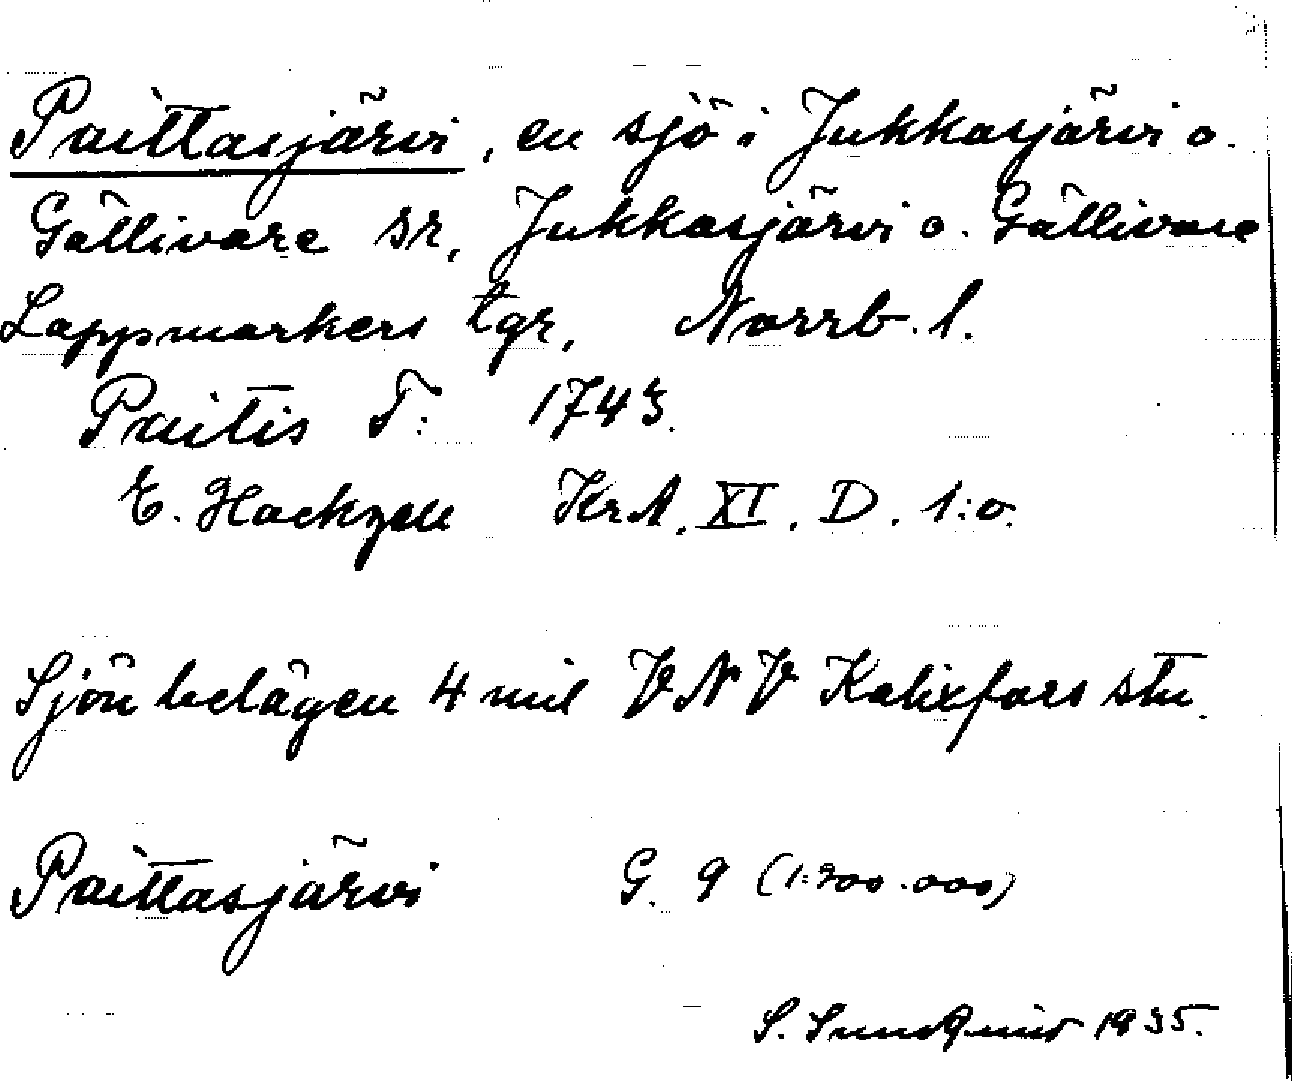 Paittasjärvi, en sjö i Jukkasjärvi o.
Gällivare sr, Jukkasjärvi o. Gällivare
Lappmarkers tgr, Norrb. l.
Paitis T: 1743.
E. Hackzell KrA. XI. D. 1:o.
Sjön belägen 4 mil VNV Kalixfors stn.
Paittasjärvi G. 9 (1:200.000)
S. Sundquist 1935.